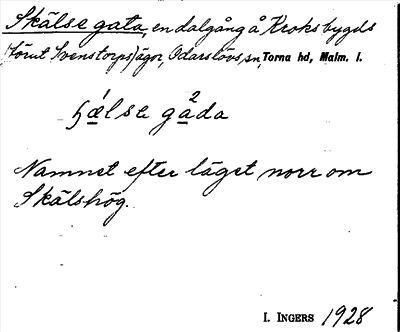 Skälse gata, en dalgång å Kroksbygds
(förut Svenstorps) ägor, Odarslövs sn, Torna hd, Malm. l.
hǽlse ga²da
Namnet efter läget norr om
Skälshög.
I. INGERS 1928